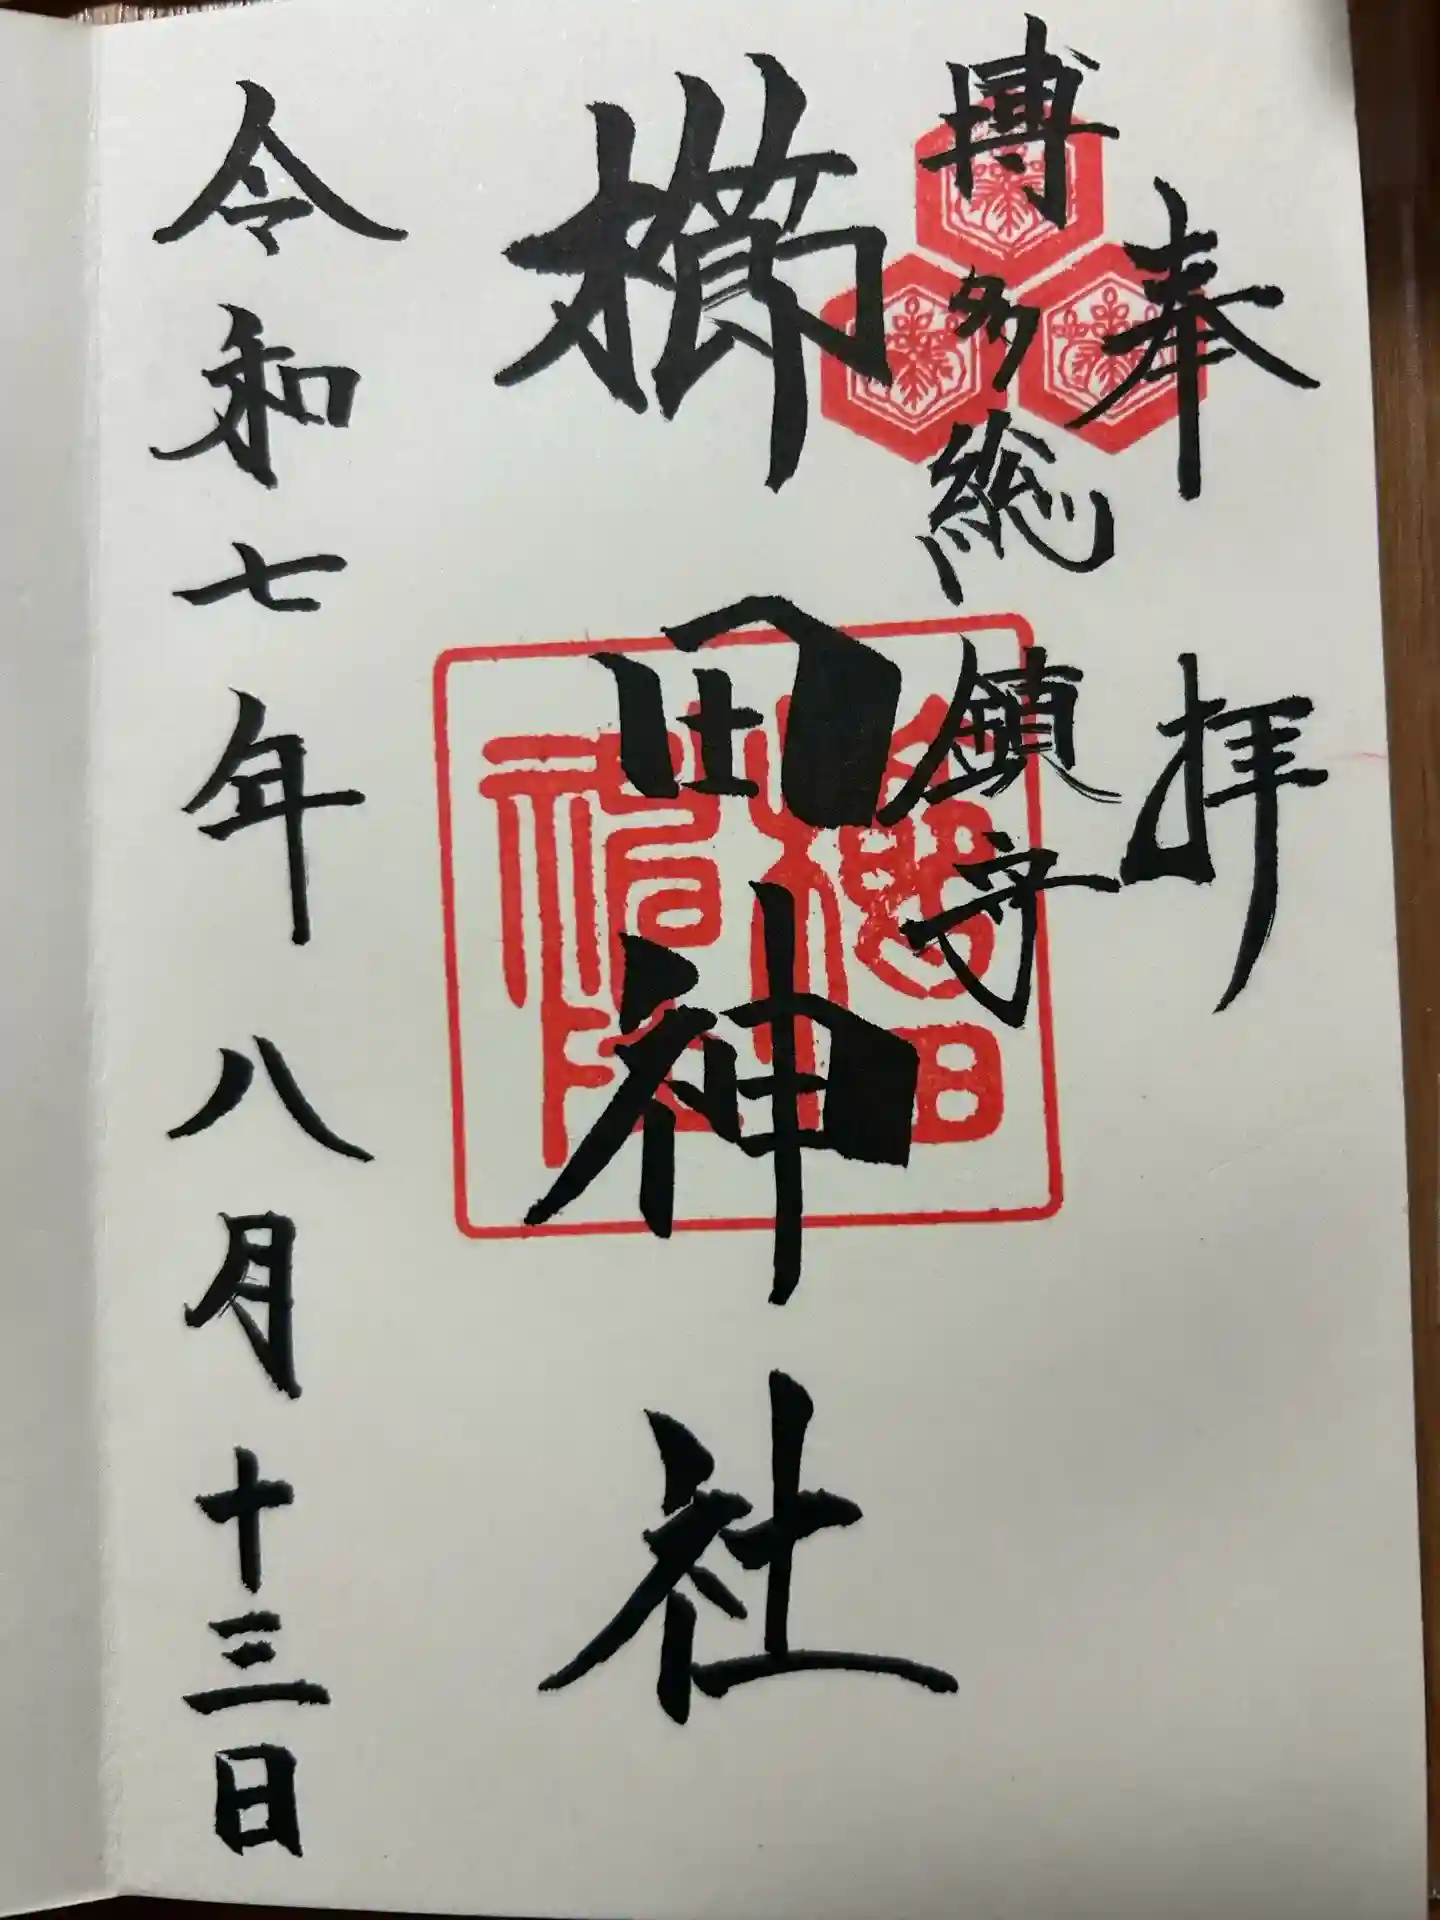 奉拝
博多総鎮守
櫛田神社
櫛田
神印
令和七年八月十三日